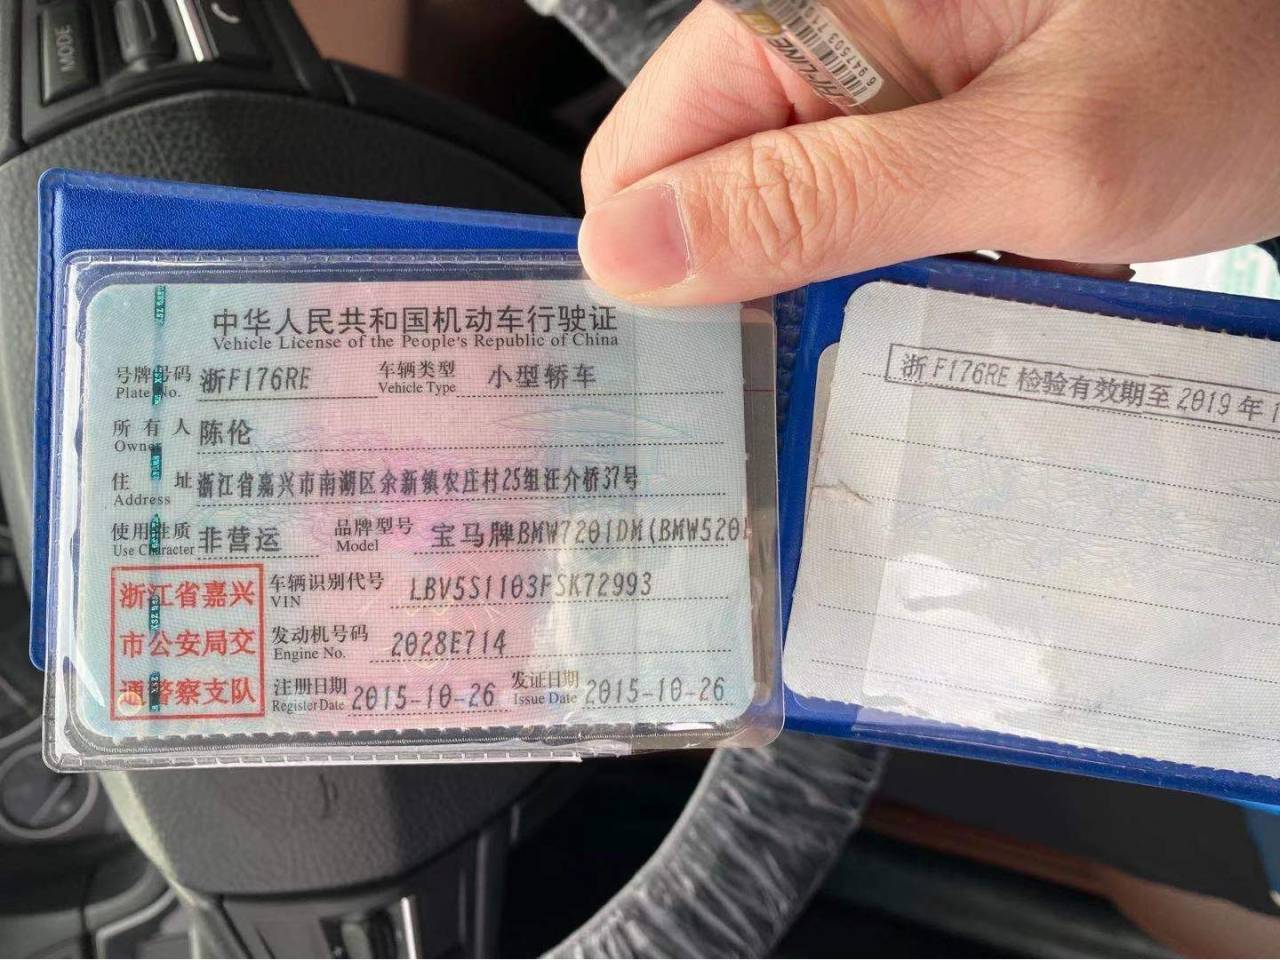 MODE
6 947503 71
中华人民共和国机动车行驶证
Vehicle License of the People's Republic of China
号牌号码 浙F176RE 车辆类型 小型轿车
Plate No. Vehicle Type
所有人 陈伦
Owner
住址 浙江省嘉兴市南湖区余新镇农庄村25组汪介桥37号
Address
使用性质 非营运 品牌型号 宝马牌BMW7201DM(BMW5201
Use Character Model
浙江省嘉兴
市公安局交
通警察支队
车辆识别代号 LBV5S1103FSK72993
VIN
发动机号码 2028E714
Engine No.
注册日期 2015-10-26 发证日期 2015-10-26
Register Date Issue Date
浙F176RE 检验有效期至 2019 年 1